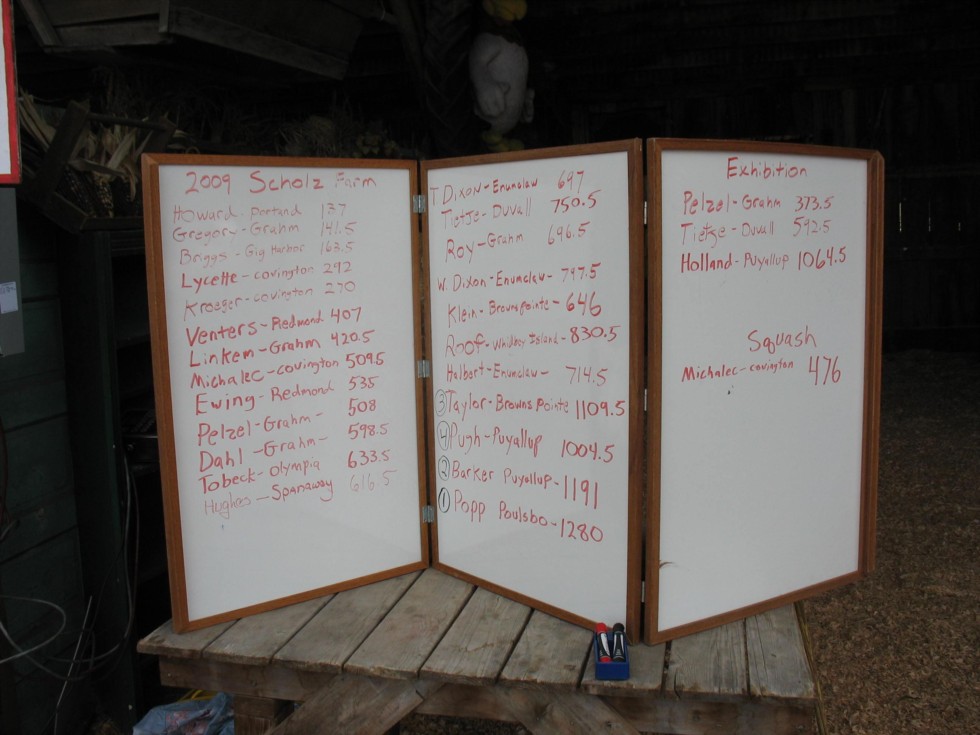 2009 Scholz Farm
Howard - Portand 137
Gregor - Grahm 141.5
Briggs - Gig Harbor 163.5
Lycette - covington 292
Kroeger - covington 270
Venters - Redmond 407
Linkem - Grahm 420.5
Michalec - covington 509.5
Ewing - Redmond 535
Pelzel - Grahm - 508
Dahl - Grahm - 598.5
Tobeck - Olympia 633.5
Hughes - Spanaway 616.5
T Dixon - Enumclaw 697
Tietje - Duvall 750.5
Roy - Grahm 696.5
W. Dixon - Enumclaw - 797.5
Klein - Brownspointe - 646
Roof - Whidbey Island - 830.5
Halbert - Enumclaw - 714.5
③ Taylor - Browns Pointe 1109.5
④ Pugh - Puyallup 1004.5
② Barker Puyallup - 1191
① Popp Poulsbo - 1280
Exhibition
Pelzel - Grahm 373.5
Tietje - Duvall 592.5
Holland - Puyallup 1064.5
Squash
Michalec - covington 476